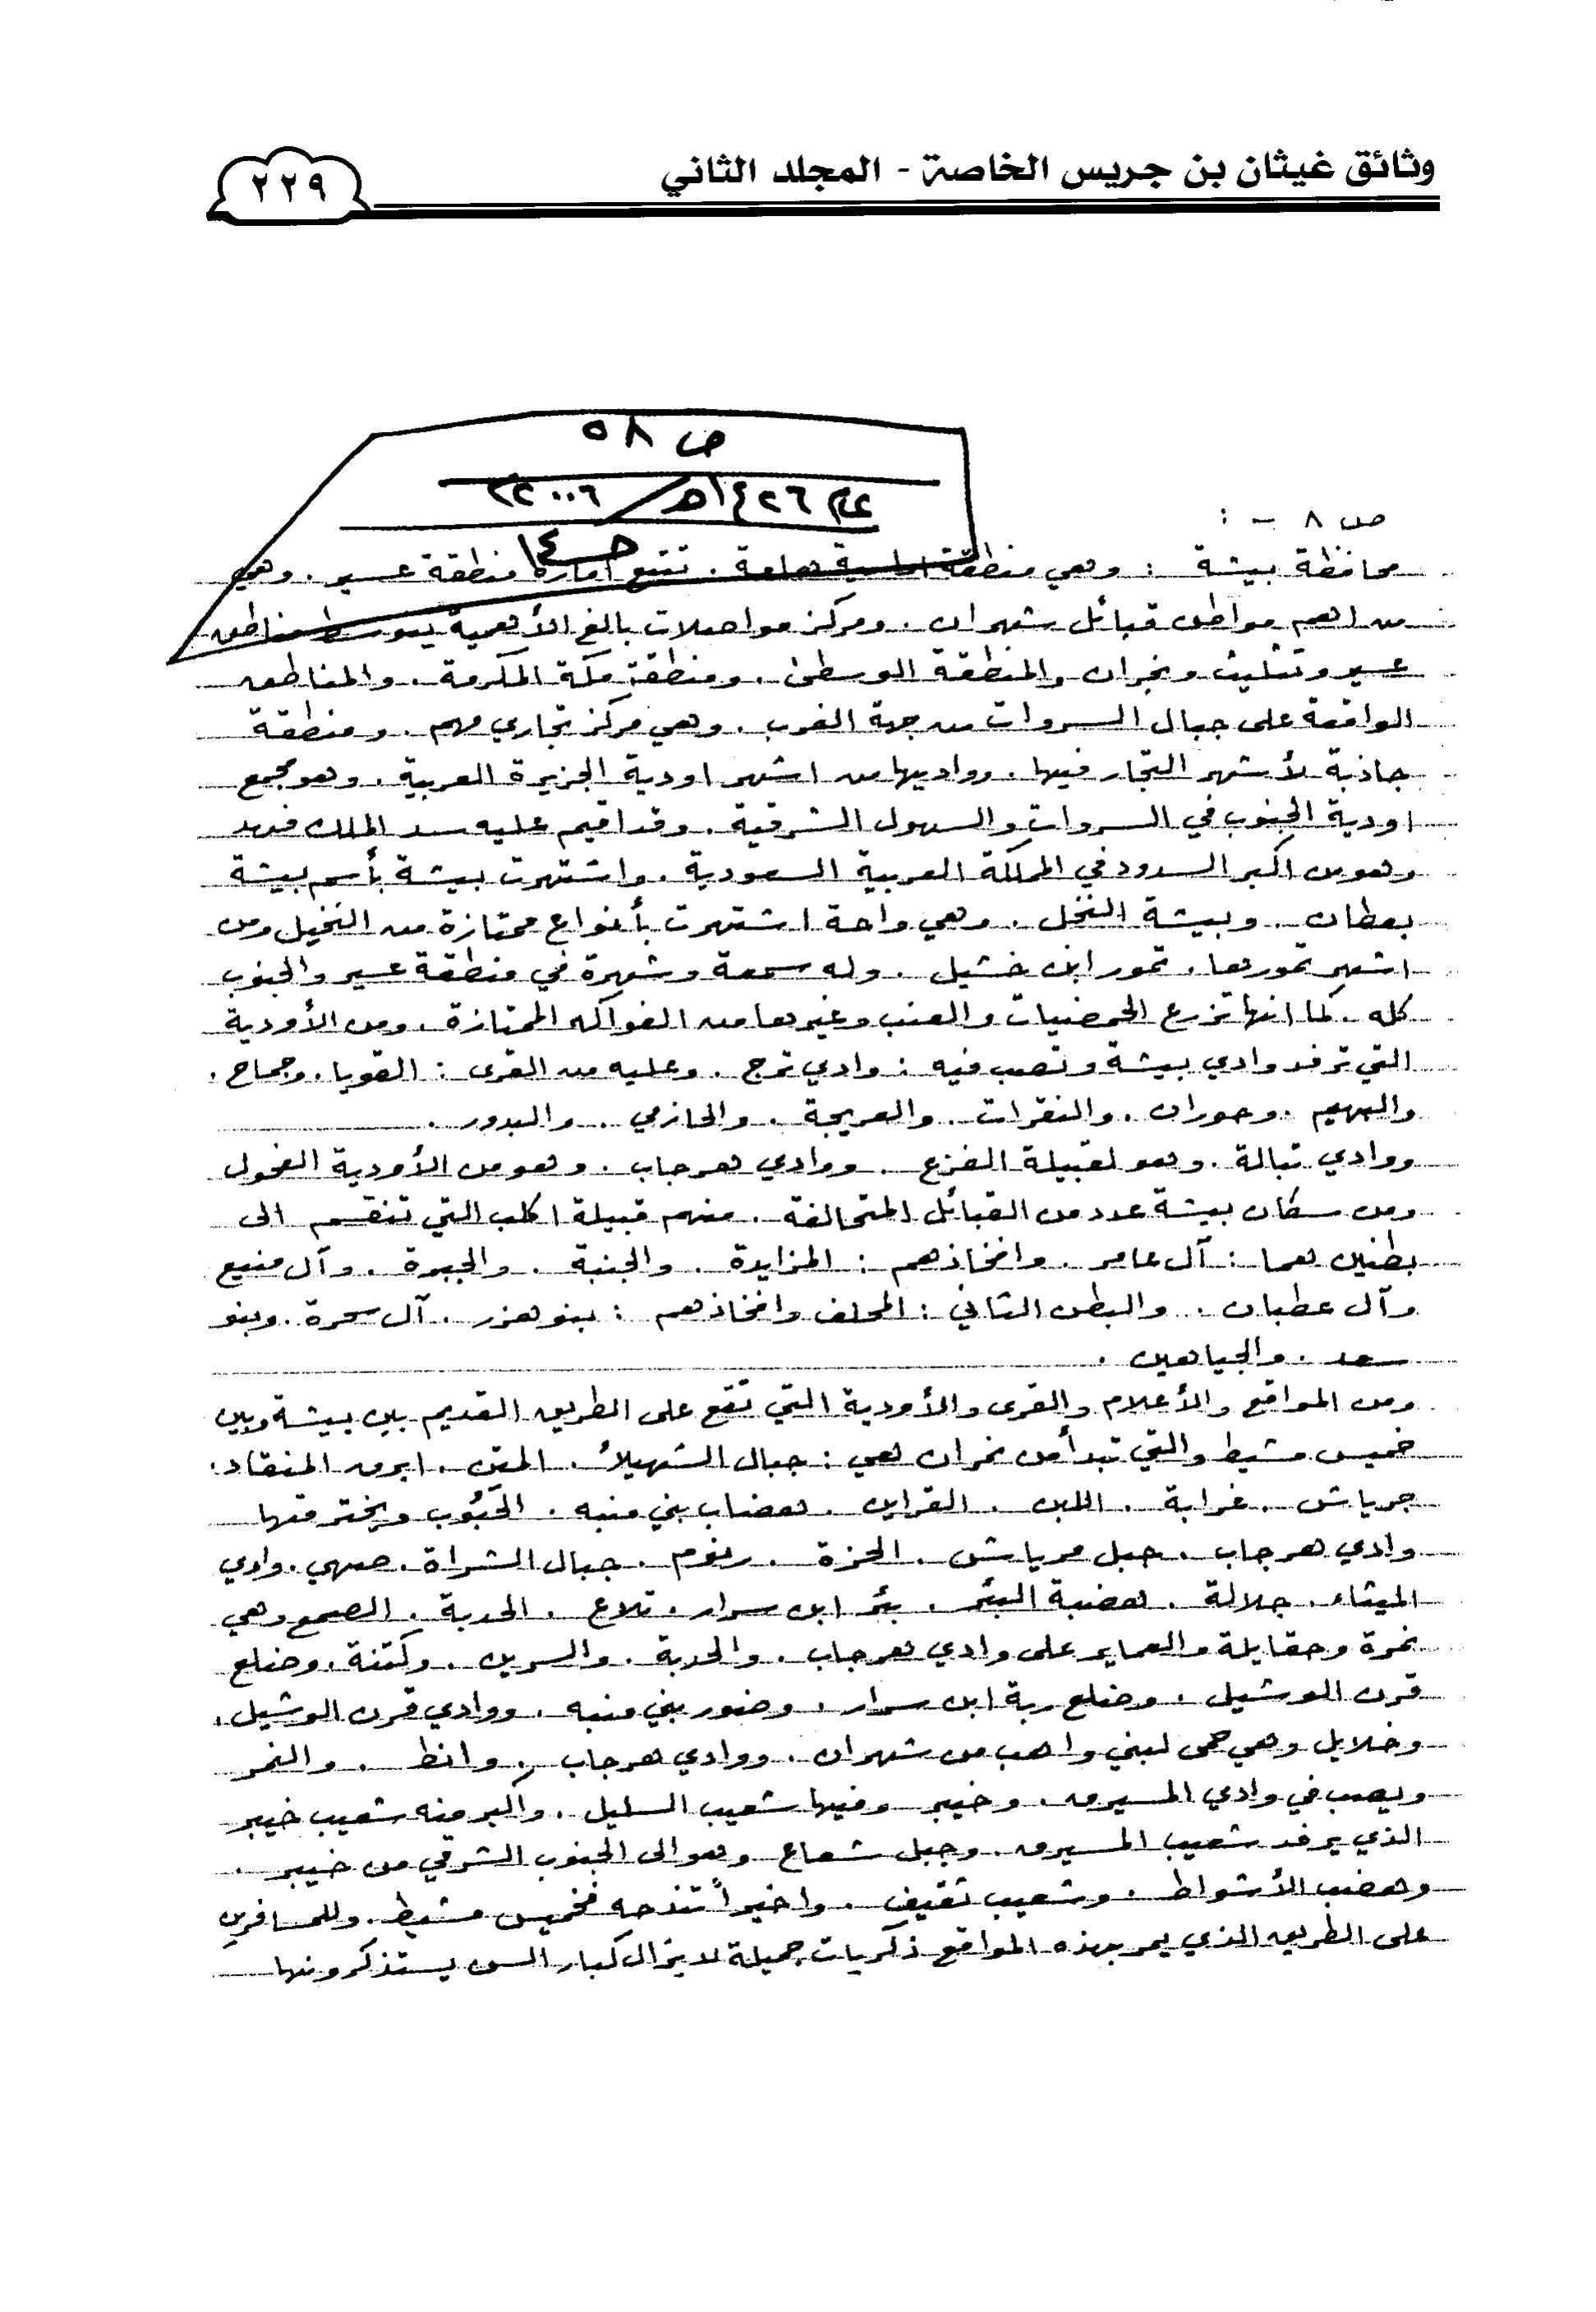 وثائق غيثان بن جريس الخاصة - المجلد الثاني
٢٢٩
ص ٥٨
عام ١٤٢٦هـ/٢٠٠٦م
جـ ١٤
ص ٨ - :
محافظة بيشة : وهي منطقة هامة . تتبع امارة منطقة عسير . وهي
من اهم مواطن قبائل شهران . ومركز مواصلات بالغ الأهمية يتوسط مناطق
عسير وتثليث ونجران والمنطقة الوسطى . ومنطقة مكة المكرمة . والمناطق
الواقعة على جبال السروات من جهة الغرب . وهي مركز تجاري مهم . ومنطقة
جاذبة لأشهر التجار فيها . وواديها من اشهر اودية الجزيرة العربية . وهو مجمع
اودية الجنوب في السروات والسهول الشرقية . وقد اقيم عليه سد الملك فهد
وهو من اكبر السدود في المملكة العربية السعودية . واشتهرت بيشة بأسم بيشة
بعطان . وبيشة النخل . وهي واحة اشتهرت بأنواع ممتازة من النخيل ومن
اشهر تمورها . تمور ابن خشيل . وله سمعة وشهرة في منطقة عسير والجنوب
كله . كما انها تزرع الحمضيات والعنب وغيرها من الفواكه الممتازة . ومن الأودية
التي ترفد وادي بيشة وتصب فيه : وادي ترج . وعليه من القرى : القوبا . وجماح .
والبهيم . وحوران . والنقرات . والعريجة . والحازمي . والبدور .
ووادي تبالة . وهو لقبيلة الفزع . ووادي هرجاب . وهو من الأودية الفحول
ومن سكان بيشة عدد من القبائل المتحالفة . منهم قبيلة اكلب التي تنقسم الى
بطنين هما : آل عامر . وافخاذهم : المزايدة . والجنبة . والجبرة . وآل منيع
وآل عطبان . والبطن الثاني : المحلف وافخاذهم : بنو هزر . آل سحرة . وبنو
سعد . والجياهين .
ومن المواقع والأعلام والقرى والأودية التي تقع على الطريق القديم بين بيشة وبين
خميس مشيط والتي تبدأ من نمران هي : جبال الشهيلاء . المتن . ابرق المنقاد .
جرياش . غرابة . اللبن . القراين . هضاب بني منبه . الحَبُوب ويخترقها
وادي هرجاب . جبل مرياش . الحزة . رغوم . جبال الشراة . صهي . وادي
الميثاء . جلالة . هضبة البئر . بئر ابن سرار . تلاع . الحدبة . الصمع وهي
نمرة وحقايلة والعماير على وادي هرجاب . والحدبة . والسرين . وكتنة . وضلع
قرن الوشيل . وضلع ربة ابن سرار . وضور بني منبه . ووادي قرن الوشيل .
وخلايل وهي حمى لبني واهب من شهران . ووادي هرجاب . وانط . والنمر
ويصب في وادي المسيرق . وخيبر وفيها شعيب السليل . واكبر منه شعيب خيبر
الذي يرفد شعيب المسيرق . وجبل شعاع وهو الى الجنوب الشرقي من خيبر .
وهضب الأشواط . وشعيب ثقيف . واخيراً تندحه فخميس مشيط . وللمسافرين
على الطريق الذي يمر بهذه المواقع ذكريات جميلة لا يزال كبار السن يستذكرونها